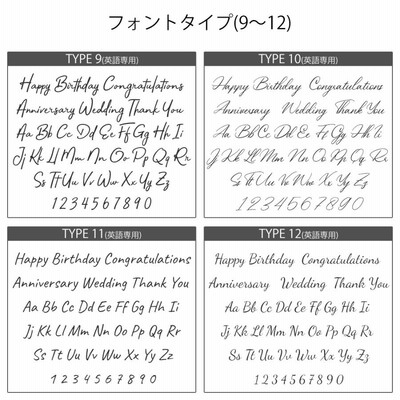 フォントタイプ(9～12)
TYPE 9(英語専用)
Happy Birthday Congratulations
Anniversary Wedding Thank You
Aa Bb Cc Dd Ee Ff Gg Hh Ii
Jj Kk Ll Mm Nn Oo Pp Qq Rr
Ss Tt Uu Vv Ww Xx Yy Zz
1 2 3 4 5 6 7 8 9 0
TYPE 10(英語専用)
Happy Birthday Congratulations
Anniversary Wedding Thank You
Aa Bb Cc Dd Ee Ff Gg Hh Ii
Jj Kk Ll Mm Nn Oo Pp Qq Rr
Ss Tt Uu Vv Ww Xx Yy Zz
1 2 3 4 5 6 7 8 9 0
TYPE 11(英語専用)
Happy Birthday Congratulations
Anniversary Wedding Thank You
Aa Bb Cc Dd Ee Ff Gg Hh Ii
Jj Kk Ll Mm Nn Oo Pp Qq Rr
Ss Tt Uu Vv Ww Xx Yy Zz
1 2 3 4 5 6 7 8 9 0
TYPE 12(英語専用)
Happy Birthday Congratulations
Anniversary Wedding Thank You
Aa Bb Cc Dd Ee Ff Gg Hh Ii
Jj Kk Ll Mm Nn Oo Pp Qq Rr
Ss Tt Uu Vv Ww Xx Yy Zz
1 2 3 4 5 6 7 8 9 0